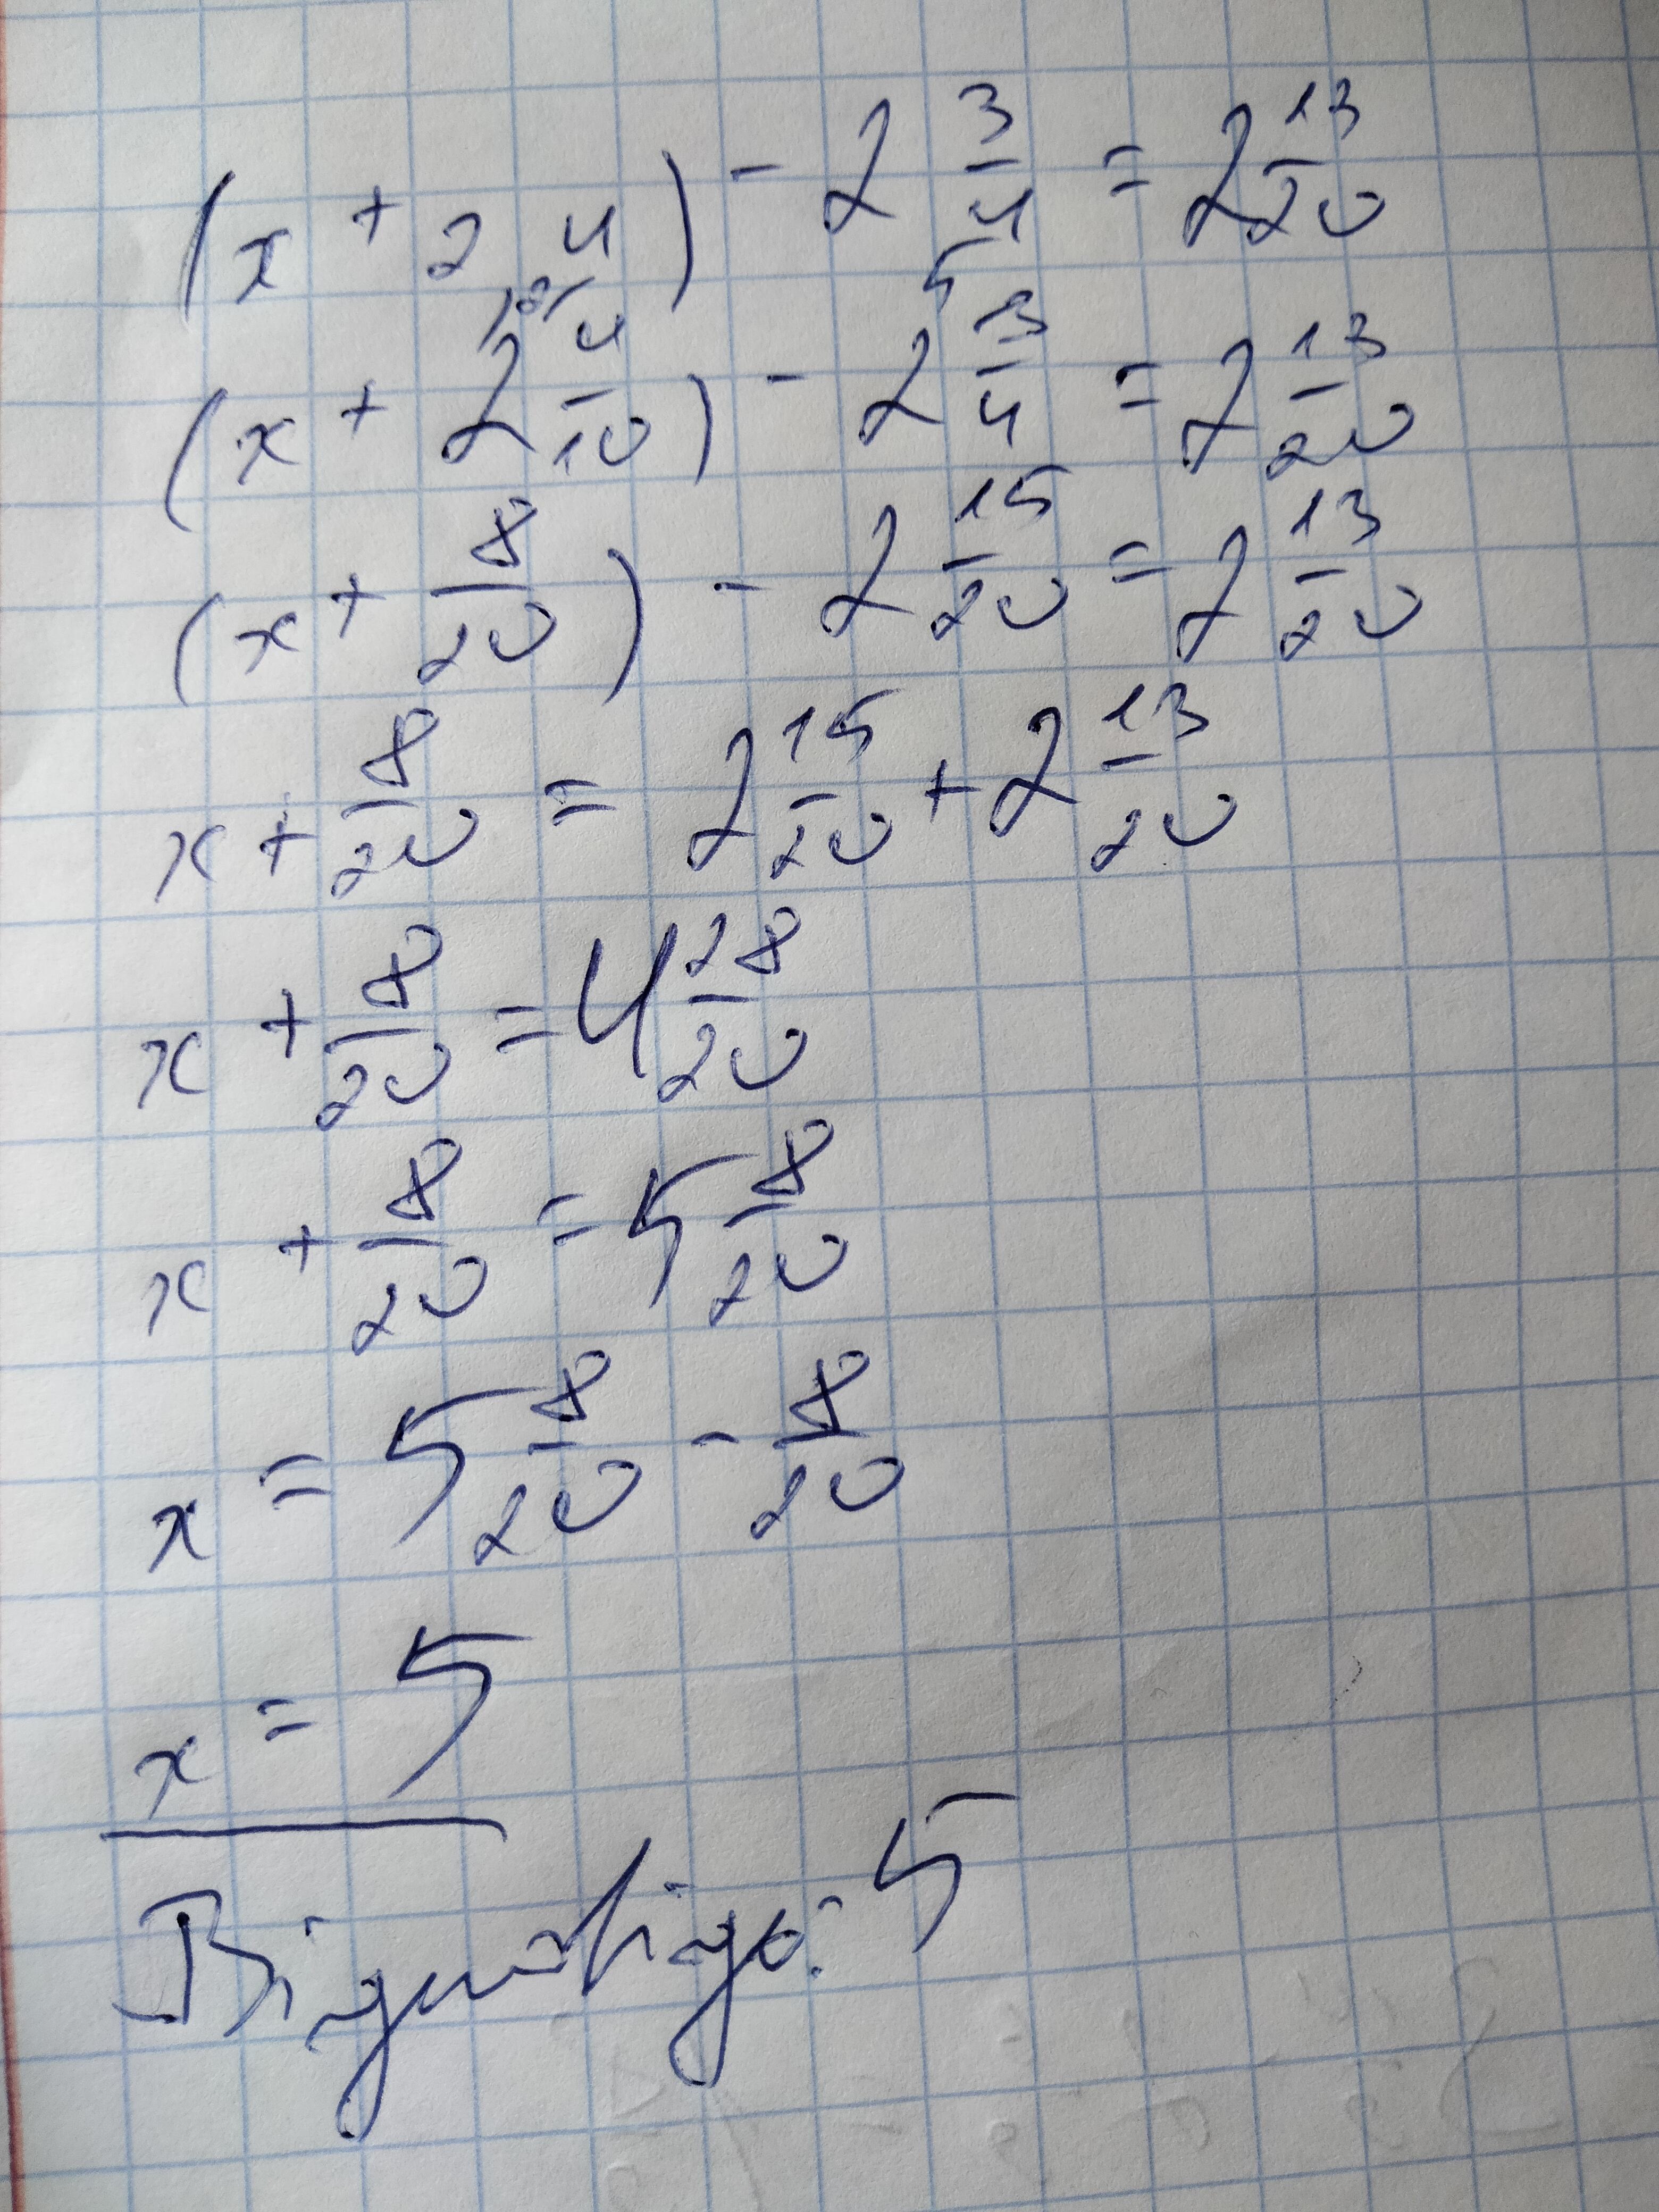 (x + 2 4/10) - 2 3/4 = 2 13/20
(x + 2 4/10) - 2 5 13/4 = 2 13/20
(x + 8/20) - 2 15/20 = 2 13/20
x + 8/20 = 2 15/20 + 2 13/20
x + 8/20 = 4 28/20
x + 8/20 = 5 8/20
x = 5 8/20 - 8/20
x = 5
Відповідь: 5